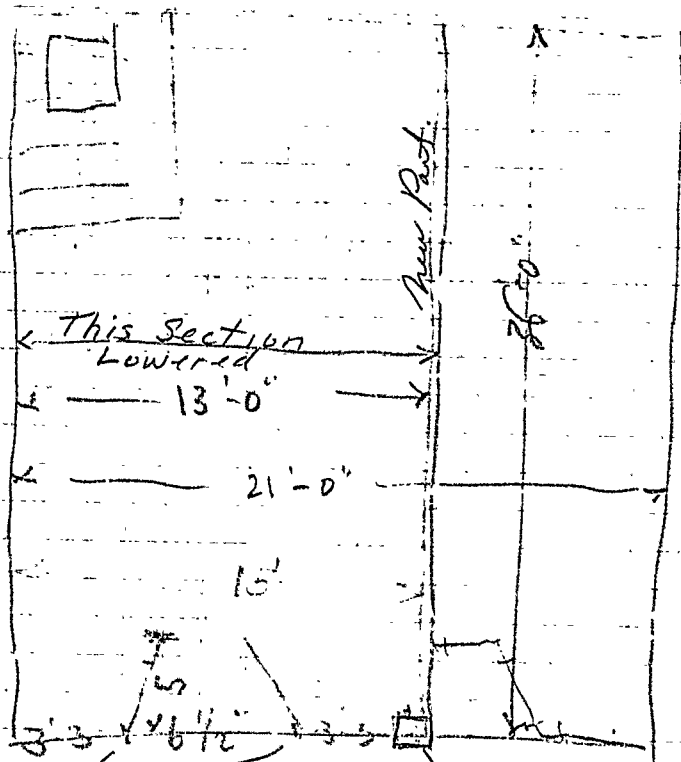 New Part.
This Section
Lowered
13'-0"
21'-0"
3'3 6 1/2" 3'3